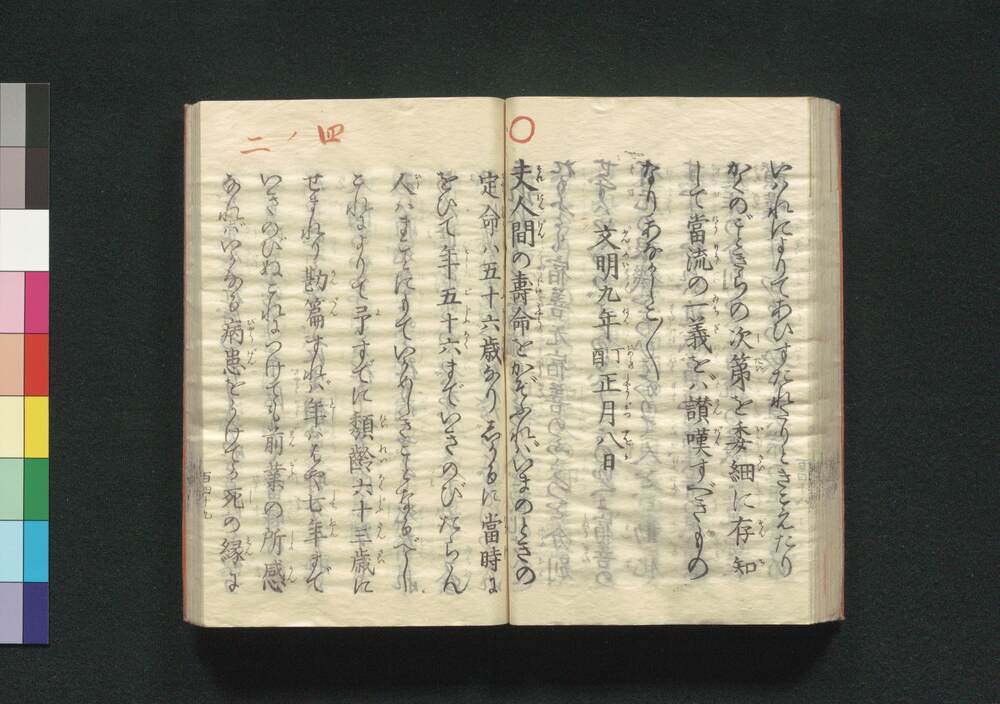 いはれによりてあひすたれたりときこえたり
かくのごときらの次第を委細に存知
して當流の一義をハ讃嘆すべきもの
なりあなかしこ〳〵
文明九年丁酉正月八日
〇
夫人間の壽命をかぞふれバいまのときの
四ノ二
定命ハ五十六歳なりしかるに當時に
をひて年五十六までいきのびたらん
人ハまことにもていかめしきことなるべし
これによりて予すでに頽齡六十三歳に
せまれり勘篇すれバ年ハはや七年まで
いきのびぬこれにつけても前業の所感
なれバいかなる病患をうけてか死の縁に
百四十九